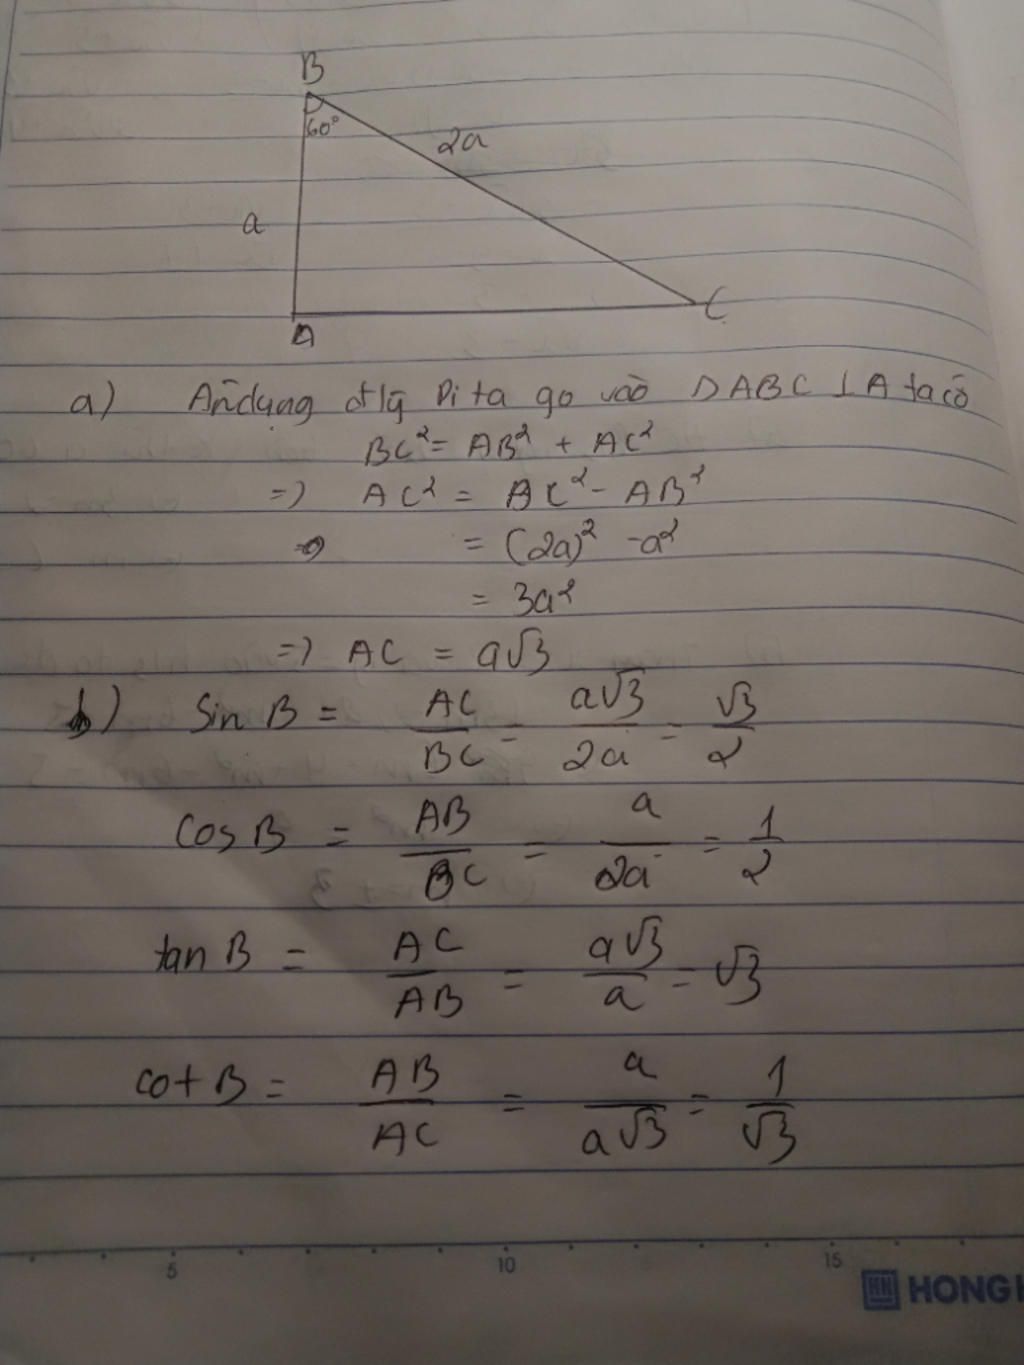 B
60°
2a
a
A
C
a) Ádụng đlý Pi ta go vào △ABC ⊥ A ta có
BC² = AB² + AC²
=> AC² = BC² - AB²
= (2a)² - a²
= 3a²
=> AC = a√3
b) Sin B = AC/BC = a√3/2a = √3/2
Cos B = AB/BC = a/2a = 1/2
tan B = AC/AB = a√3/a = √3
cot B = AB/AC = a/a√3 = 1/√3
5 10 15
HH HONG